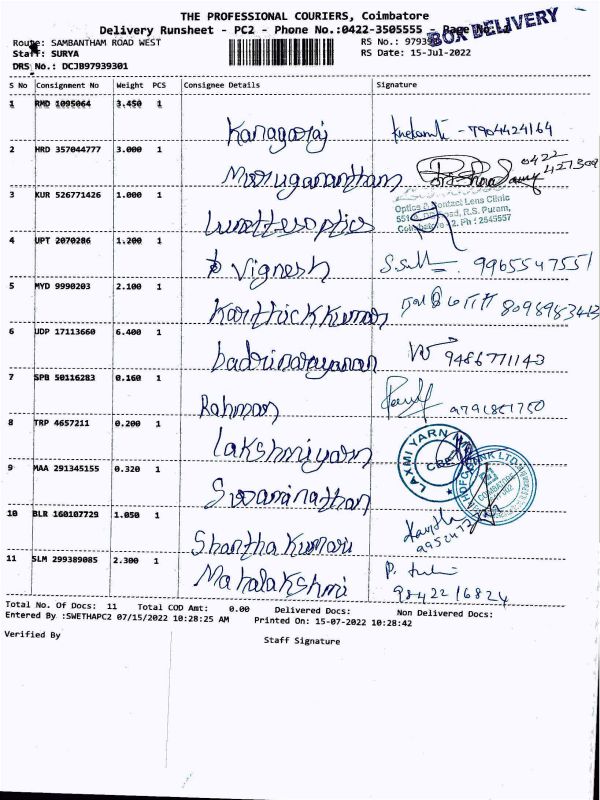 THE PROFESSIONAL COURIERS, Coimbatore
Delivery Runsheet - PC2 - Phone No.:0422-3505555 - Page No.
BOX DELIVERY
Route: SAMBANTHAM ROAD WEST
RS No.: 9793
Staff: SURYA
RS Date: 15-Jul-2022
DRS No.: DCJB97939301
S No Consignment No Weight PCS Consignee Details Signature
1 RMD 1095064 3.450 1
Kanagaraj - 7904424164
2 HRD 357044777 3.000 1
Muruganantham 0422
427309
3 KUR 526771426 1.000 1
Lunettesoptics
Optics & Contact Lens Clinic
R.S. Puram,
Coimbatore - 2. Ph : 2545557
4 UPT 2070286 1.200 1
Vignesh 9965547551
5 MYD 9990203 2.100 1
Karthick Kumar 8098983443
6 UDP 17113660 6.400 1
badrinarayanan 9486771143
7 SPB 50116283 0.160 1
Rahman
8 TRP 4657211 0.200 1
Lakshmiyarn
LAXMI YARN
CBE
9 MAA 291345155 0.320 1
Swaminathan
BANK LTD
10 BLR 160107729 1.050 1
Shantha Kumari
11 SLM 299389085 2.300 1
Mahalakshmi
9842216824
Total No. Of Docs: 11 Total COD Amt: 0.00 Delivered Docs: Non Delivered Docs:
Entered By :SWETHAPC2 07/15/2022 10:28:25 AM Printed On: 15-07-2022 10:28:42
Verified By
Staff Signature